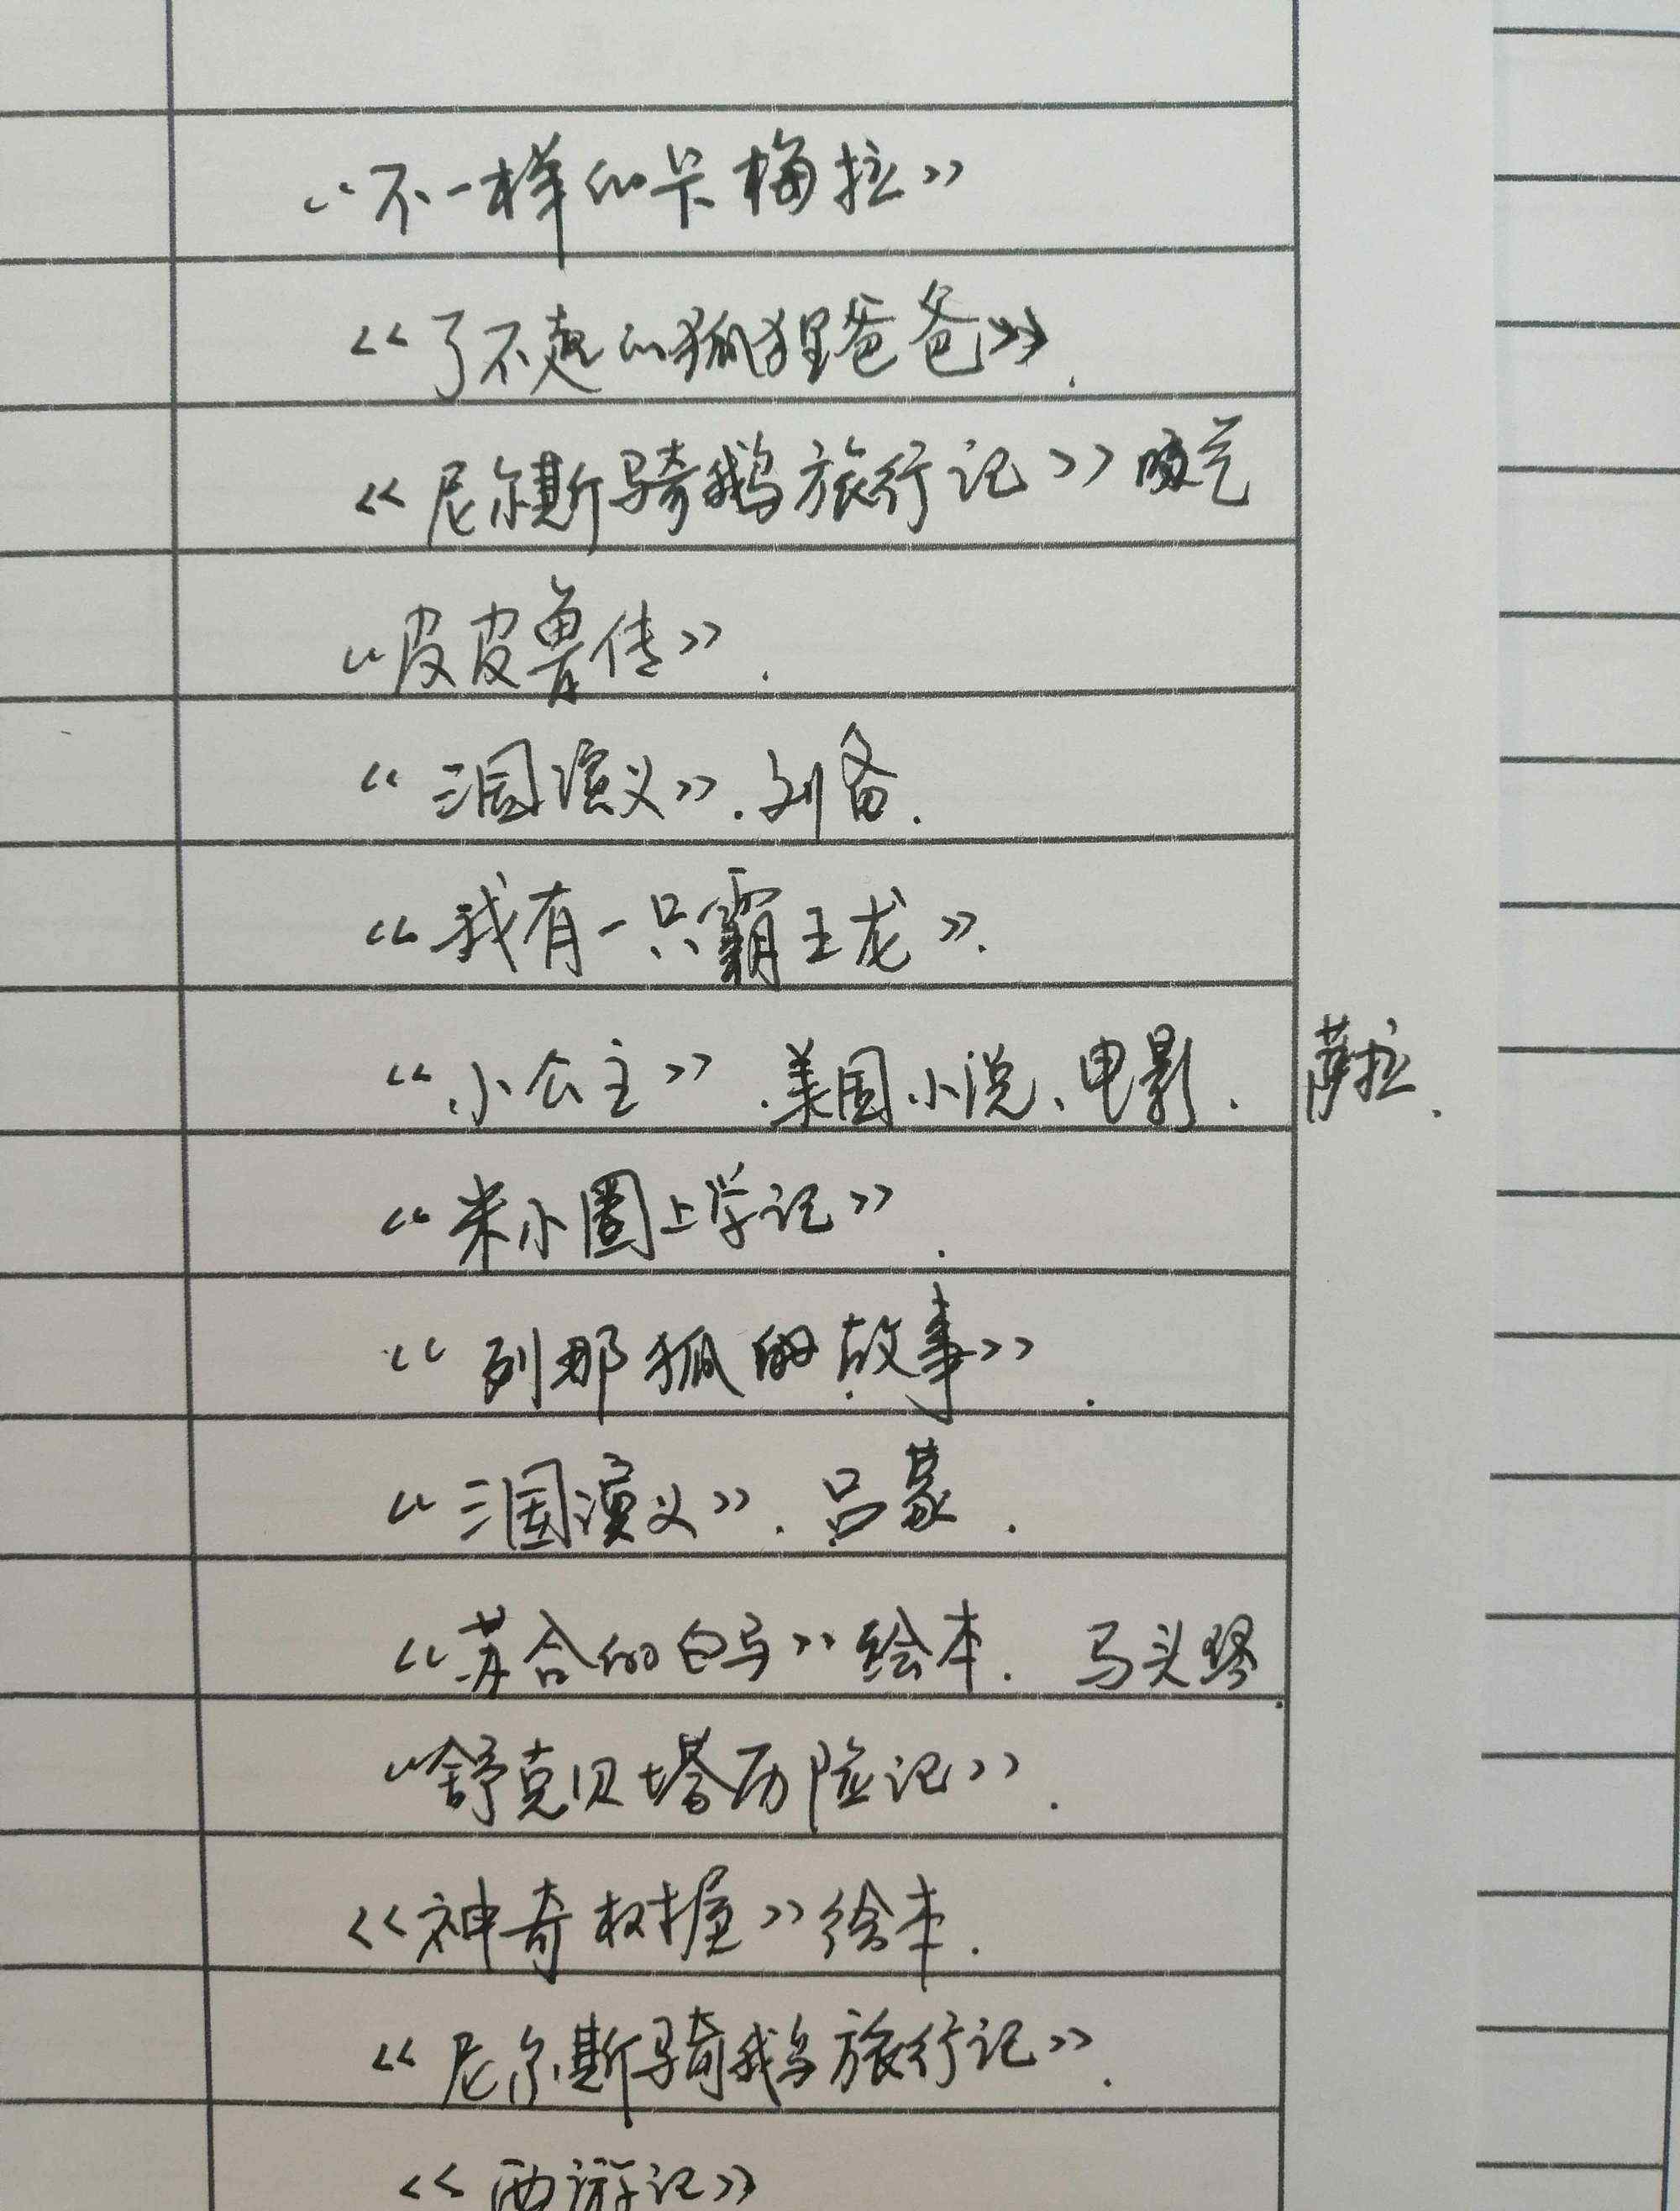 《不一样的卡梅拉》
《了不起的狐狸爸爸》.
《尼尔斯骑鹅旅行记》
《皮皮鲁传》.
《三国演义》.刘备.
《我有一只霸王龙》.
《小公主》.美国小说、电影. 萨拉.
《米小圈上学记》.
《列那狐的故事》.
《三国演义》.吕蒙.
《苏合的白马》绘本. 马头琴.
《舒克贝塔历险记》.
《神奇树屋》绘本.
《尼尔斯骑鹅旅行记》.
《西游记》